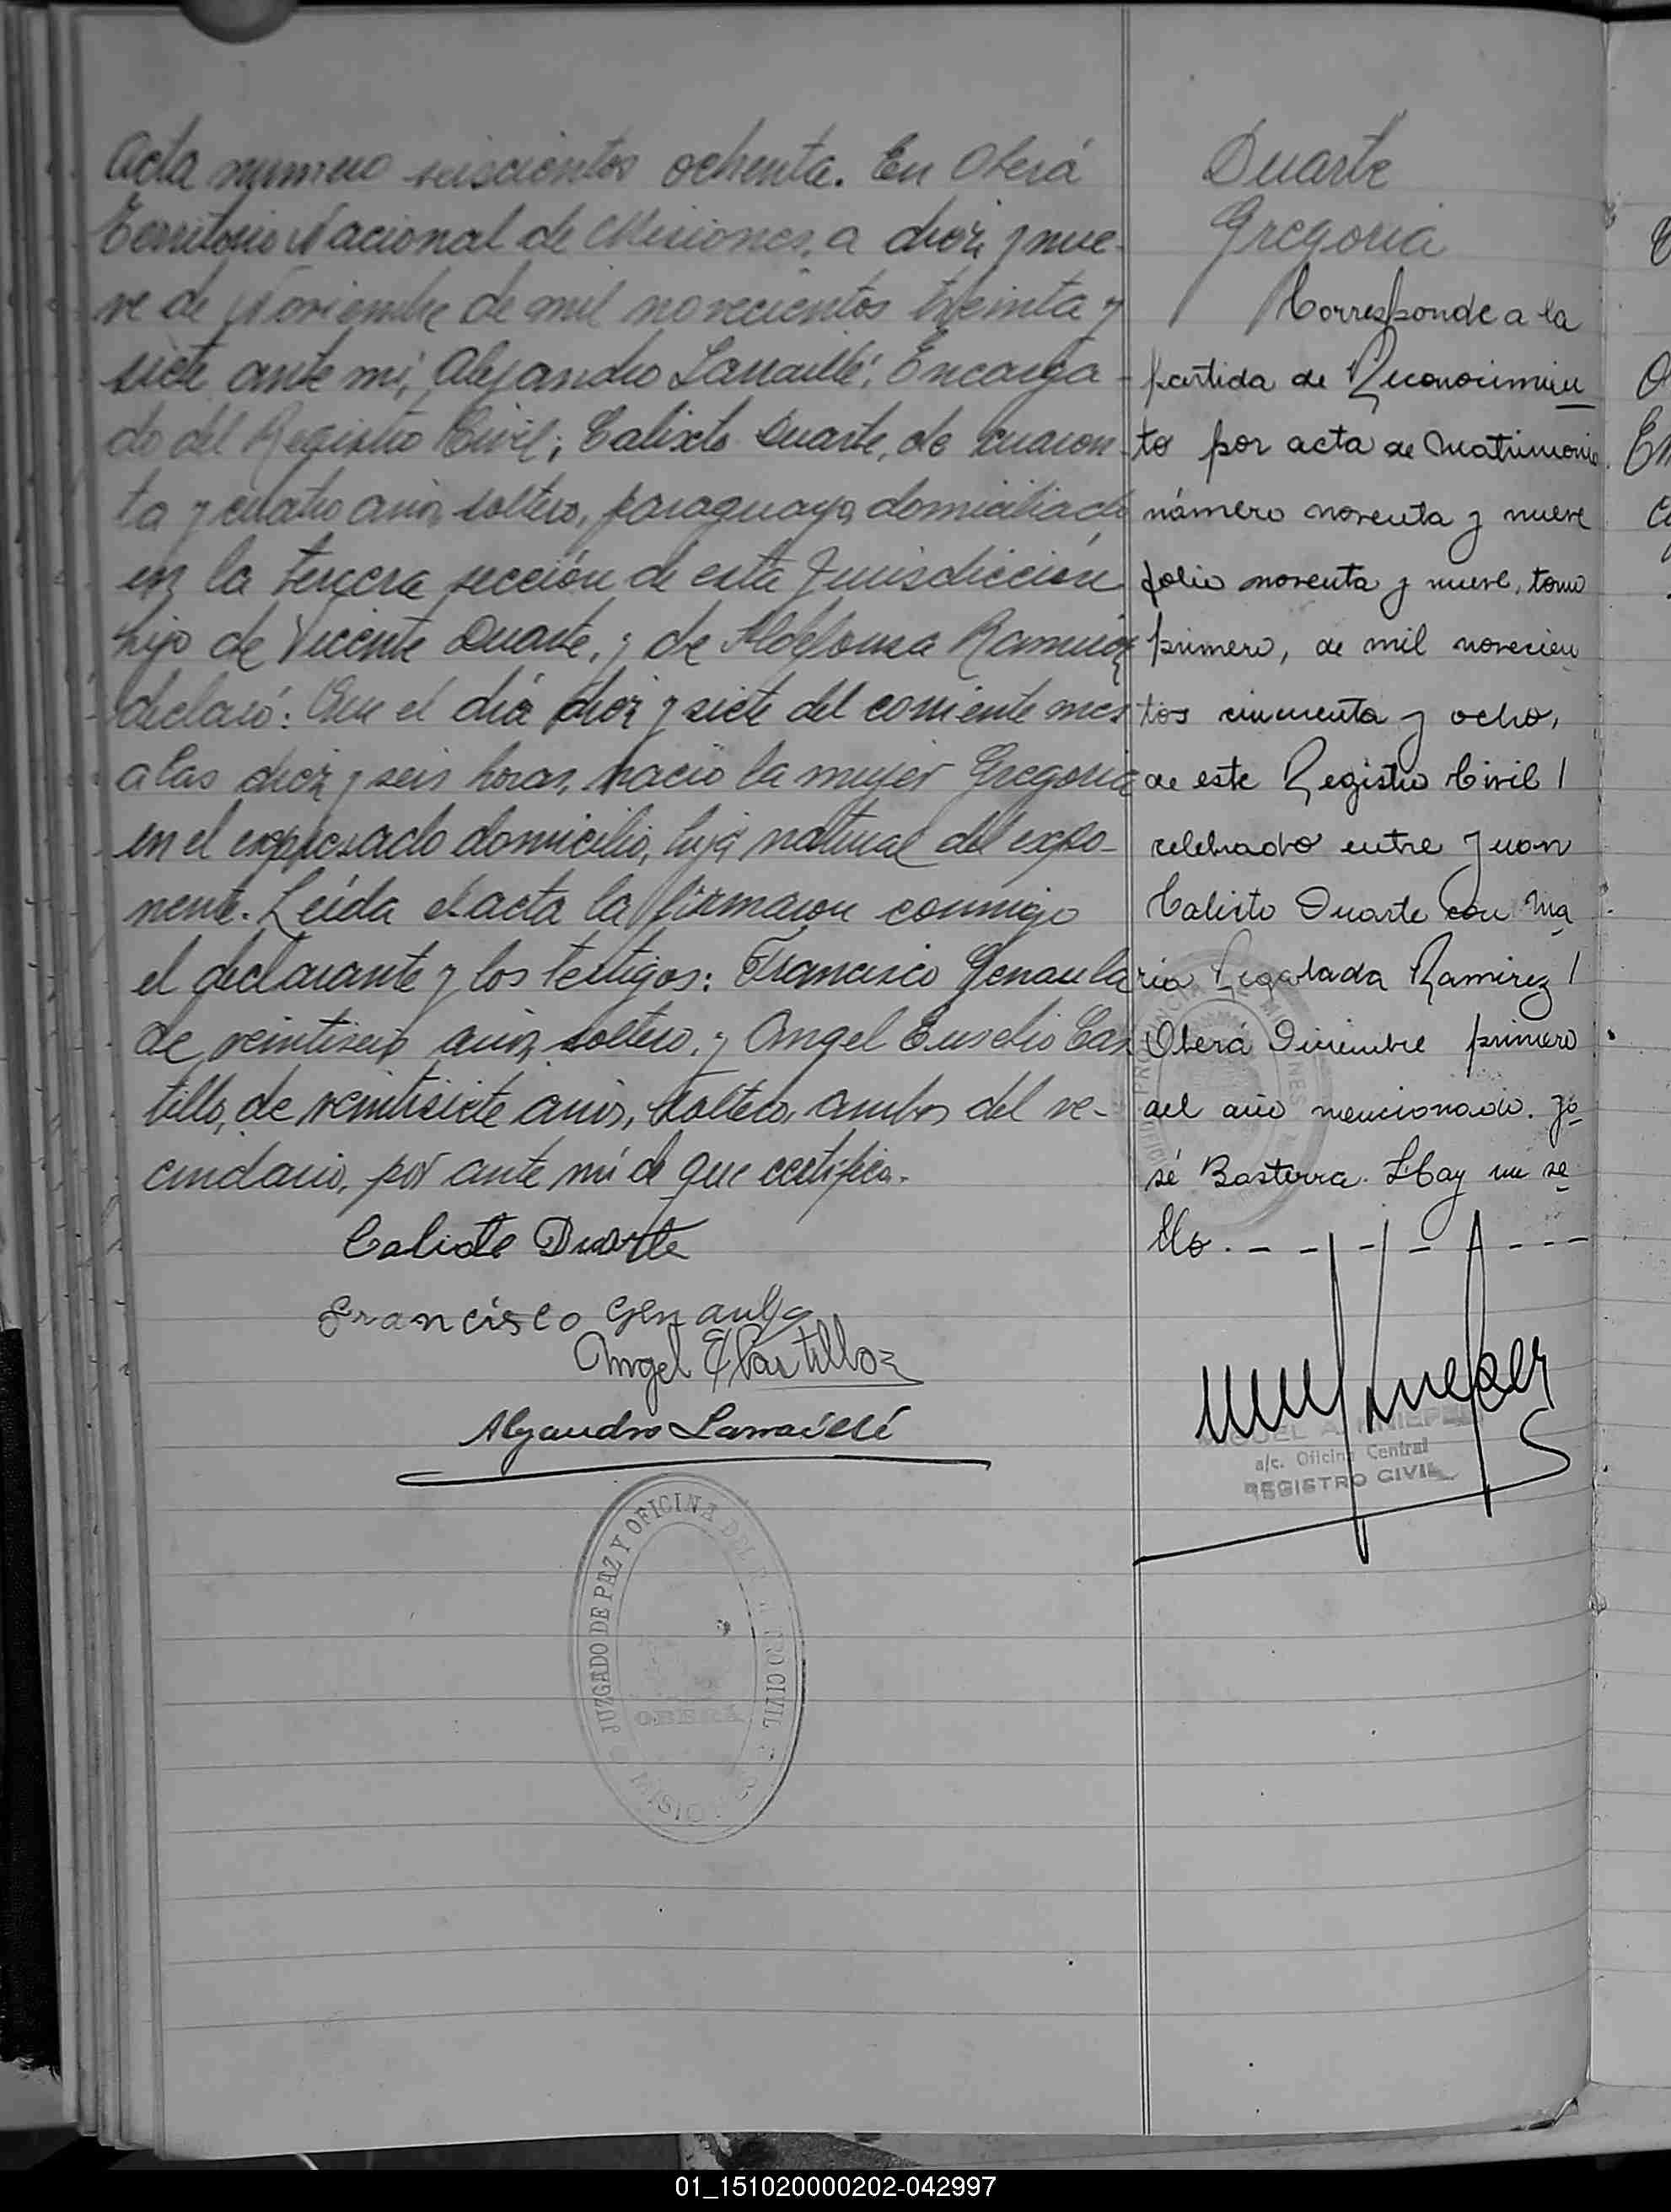 Acta numero seiscientos ochenta. En Oberá
Territorio Nacional de Misiones, a diez y nue-
ve de Noviembre de mil novecientos treinta y
siete ante mi, Alejandro Larraillé, Encarga-
do del Registro Civil; Calixto Duarte, de cuaren-
ta y cuatro años, soltero, paraguayo, domiciliado
en la tercera sección de esta Jurisdicción
hijo de Vicente Duarte, y de Ildefonsa Ramirez
declaró: Que el día diez y siete del corriente mes
a las diez y seis horas, nació la mujer Gregoria
en el expresado domicilio, hija natural del expo-
nente. Leída el acta la firmaron conmigo
el declarante y los testigos: Francisco Genaula
de veintiseis años, soltero, y Angel Eusebio Cas
tillo, de veintisiete años, soltero, ambos del ve-
cindario, por ante mí de que certifico.
Calisto Duarte
Francisco Genaula
Angel E Castillo
Alejandro Larraillé
JUZGADO DE PAZ Y OFICINA DEL REGISTRO CIVIL
OBERÁ
MISIONES
Duarte
Gregoria
Corresponde a la
partida de Reconocimien
to por acta de Matrimonio
número noventa y nueve
folio noventa y nueve, tomo
primero, de mil novecien
tos cincuenta y ocho,
de este Registro Civil /
celebrado entre Juan
Calisto Duarte con Ma
ria Regalada Ramirez /
Oberá Diciembre primero
del año mencionado. Jo
sé Basterra. Hay un se
llo. - - - - - - - - -
MIGUEL A.
a/c. Oficina Central
REGISTRO CIVIL
01_151020000202-042997